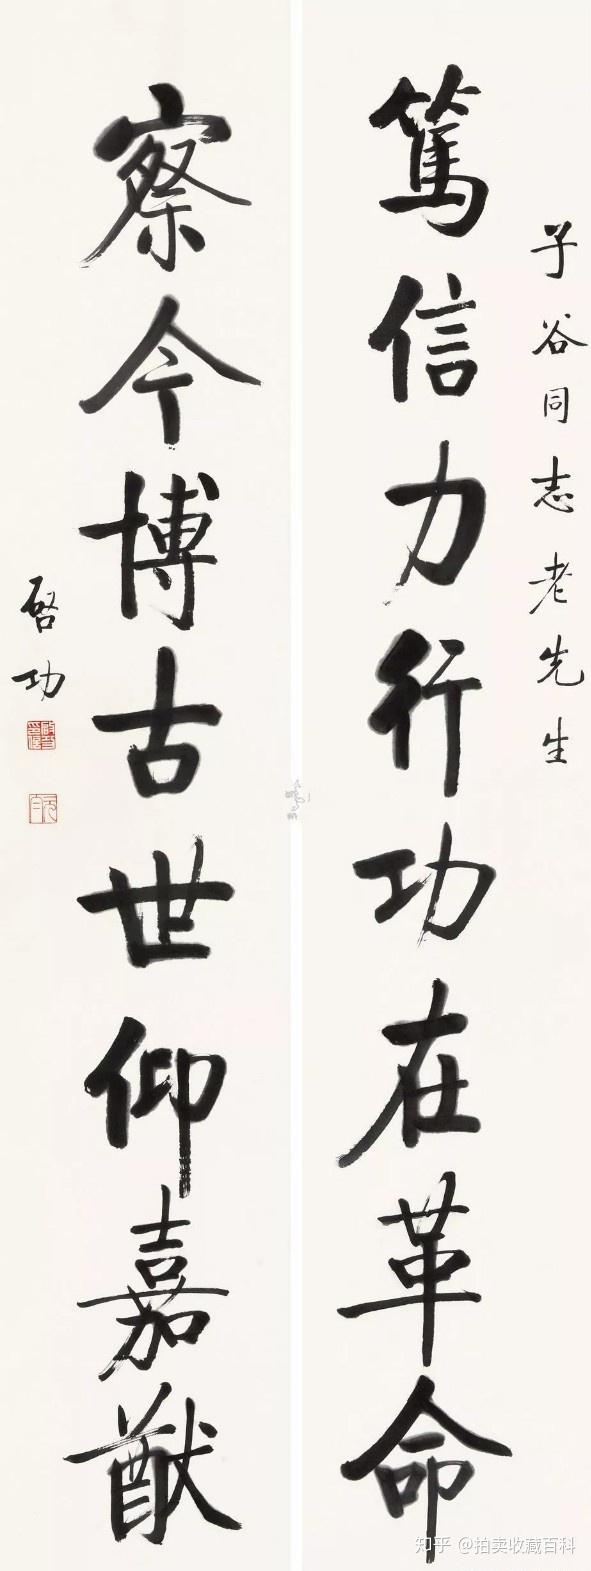 子谷同志老先生
篤信力行功在革命
察今博古世仰嘉猷
啓功
知乎 @拍卖收藏百科